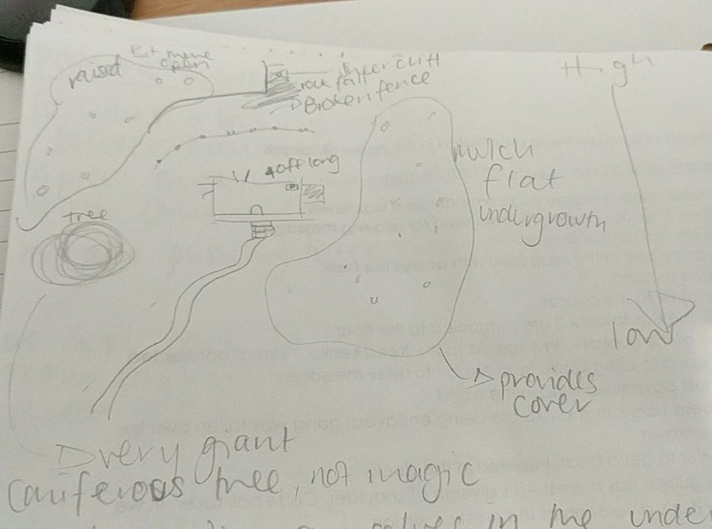 raised
Bit more
open
upper cliff
rock fall
Broken fence
High
40ft long
much
flat
undergrowth
tree
low
provides
cover
very giant
coniferous tree, not magic
in the under